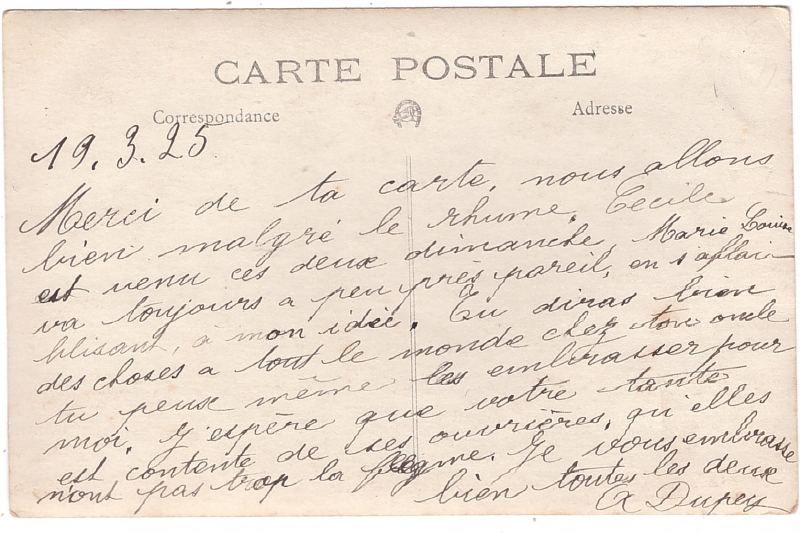 CARTE POSTALE
Correspondance
Adresse
19.3.25
Merci de ta carte, nous allons
bien malgré le rhume. Cécile
est venu ces deux dimanche, Marie Louise
va toujours a peu près pareil, en s'affai
blisant, à mon idée. Tu diras bien
des choses a tout le monde chez ton oncle
tu peux même les embrasser pour
moi. J'espère que votre tante
est contente de ses ouvrières, qu'elles
n'ont pas trop la flegme. Je vous embrasse
bien toutes les deux
A Dupey